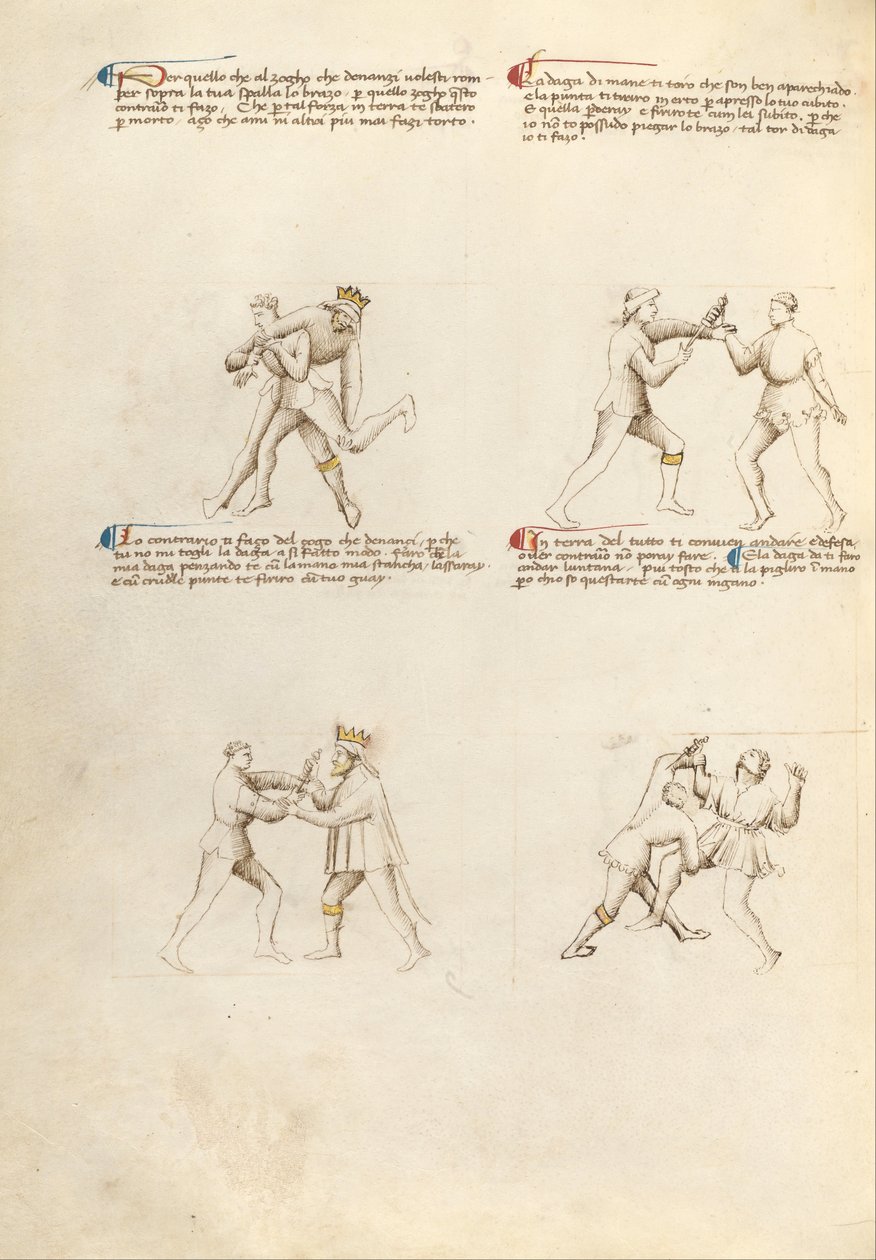 Per quello che al zogho che denanzi volesti rom-
per sopra la tua spalla lo brazo, p quello zogho q̃sto
contrario ti fazo, E che p tal forza in terra te sbatero
p morto, aço che a mi ni altroi piu mai fazi torto.
La daga di mane ti toro che son ben aparechiado.
e la punta ti tiriro in erto p apresso lo tuo cubito.
E quella pderay e firirote cum lei subito. p che
io nõ to possudo piegar lo brazo, tal tor di daga
io ti fazo.
Lo contrario ti faço del çogo che denanci, p che
tu no mi togli la daga a si fatto modo. Faro che la
mia daga penzando te cũ la mano mia stancha, lassaray.
e cũ crudele punte te firiro cũ tuo guay.
In terra del tutto ti convien andare e defesa,
over contrario nõ poray fare. E la daga da ti faro
andar luntana, piu tosto che ti la pigliro ĩ mano
po chio so quest arte cũ ogni ingano.